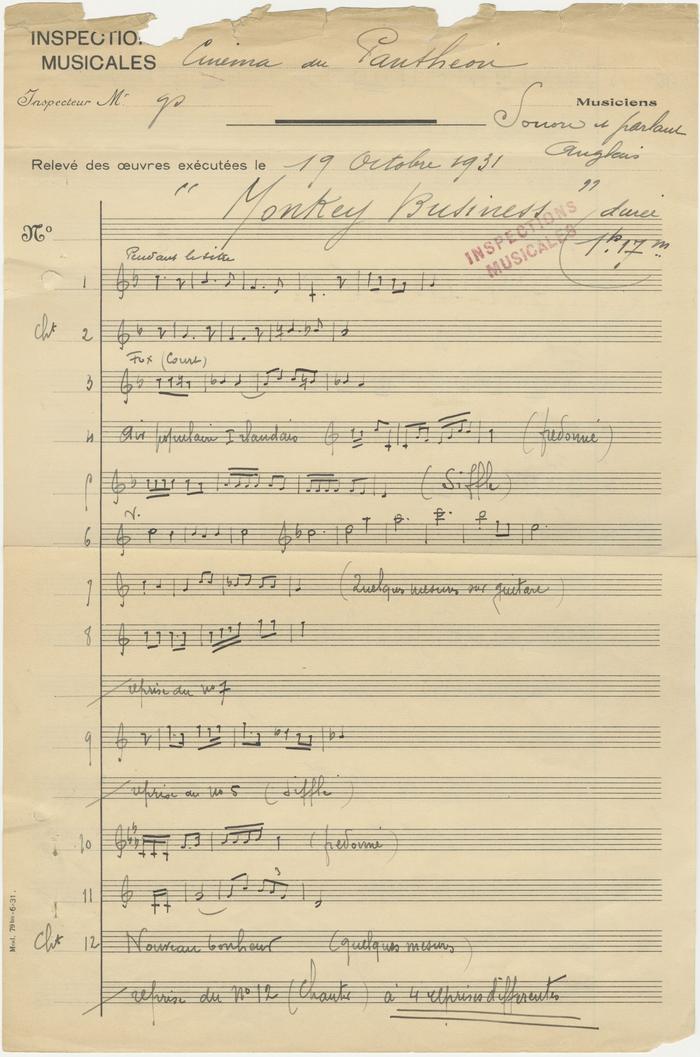 INSPECTIO
MUSICALES Cinema du Pantheon
Inspecteur Mr
Musiciens
Sonore et parlant
Anglais
Relevé des œuvres exécutées le 19 Octobre 1931
" Monkey Business " durée
1h.17m
INSPECTIONS
MUSICALES
No
Pendant le titre
1
Cht 2
Fox (Court)
3
4 Air populaire Irlandais (fredonné)
5 (Sifflé)
6
7 (Quelques mesures sur guitare)
8
reprise du no 7
9
reprise du no 5 (sifflé)
10 (fredonné)
3
11
Cht 12 Nouveau bonheur (quelques mesures)
reprise du No 12 (Chanté) à 4 reprises différentes
Mod. 79bis-6-31.